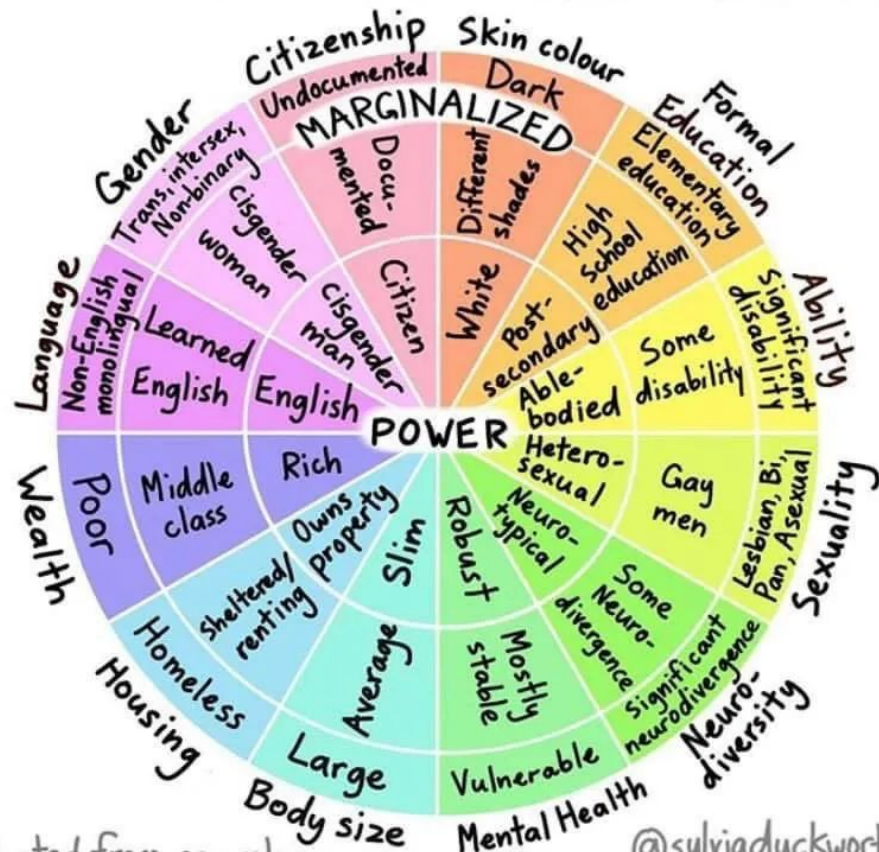 Citizenship
Undocumented
Docu-
mented
Citizen
Skin colour
Dark
Different
shades
White
Formal
Education
Elementary
education
High
School
education
Post-
secondary
Ability
Significant
disability
Some
disability
Able-
bodied
Sexuality
Lesbian, Bi,
Pan, Asexual
Gay
men
Hetero-
sexual
Neuro-
diversity
Significant
neurodivergence
Some
Neuro-
divergence
Neuro-
typical
Mental Health
Vulnerable
Mostly
stable
Robust
Body size
Large
Average
Slim
Housing
Homeless
Sheltered/
renting
Owns
property
Wealth
Poor
Middle
class
Rich
Language
Non-English
monolingual
Learned
English
English
Gender
Trans, intersex,
Non-binary
Cisgender
woman
Cisgender
man
MARGINALIZED
POWER
@sylviaduckwort